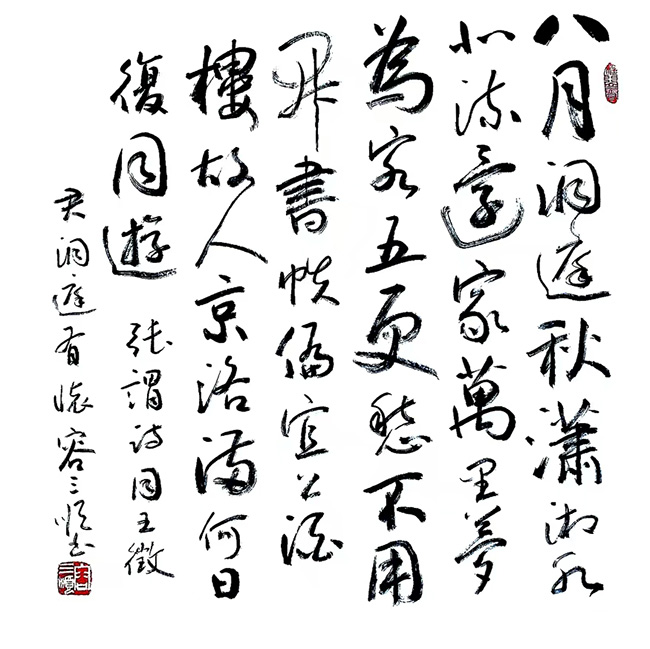 八月洞庭秋瀟湘水
北流還家萬里夢
為客五更愁不用
開書帙偏宜上酒
樓故人京洛滿何日
復同遊
張謂詩同王徵
君洞庭有懷容三順書